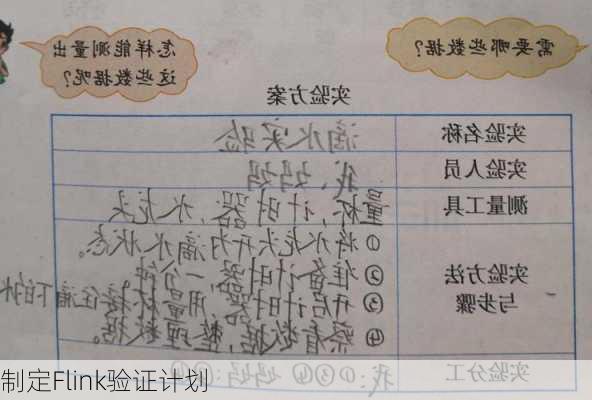 需要哪些数据？
怎样能测量出
这些数据呢？
实验方案
实验名称 滴水实验
实验人员 我、妈妈
测量工具 量杯，计时器，水龙头
实验方法
与步骤
①将水龙头开为滴水状态。
②准备计时器，一分钟
③开启计时器，用量杯接住滴下的水
④察看数据，整理数据。
实验分工 我：①③④ 妈妈：②④
制定Flink验证计划